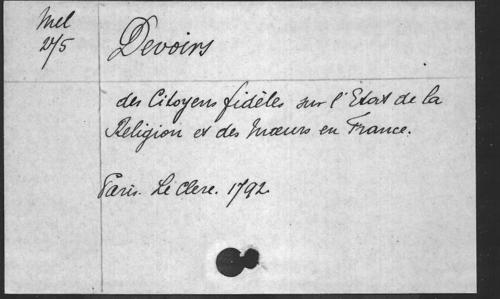 Mel
275
Devoirs
des Citoyens fidèles sur l'Etat de la
Religion et des Mœurs en France.
Paris. Le Clere. 1792.